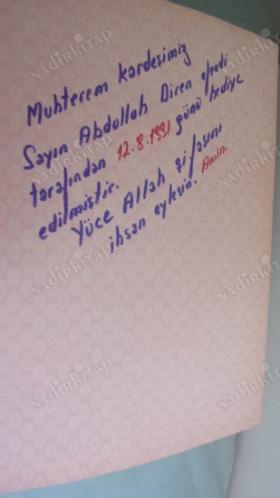 Muhterem kardeşimiz
Sayın Abdullah Diren efendi
tarafından 12.8.1991 günü hediye
edilmiştir.
Yüce Allah şifasını
ihsan eylesin. Amin.
NADİRKİTAP